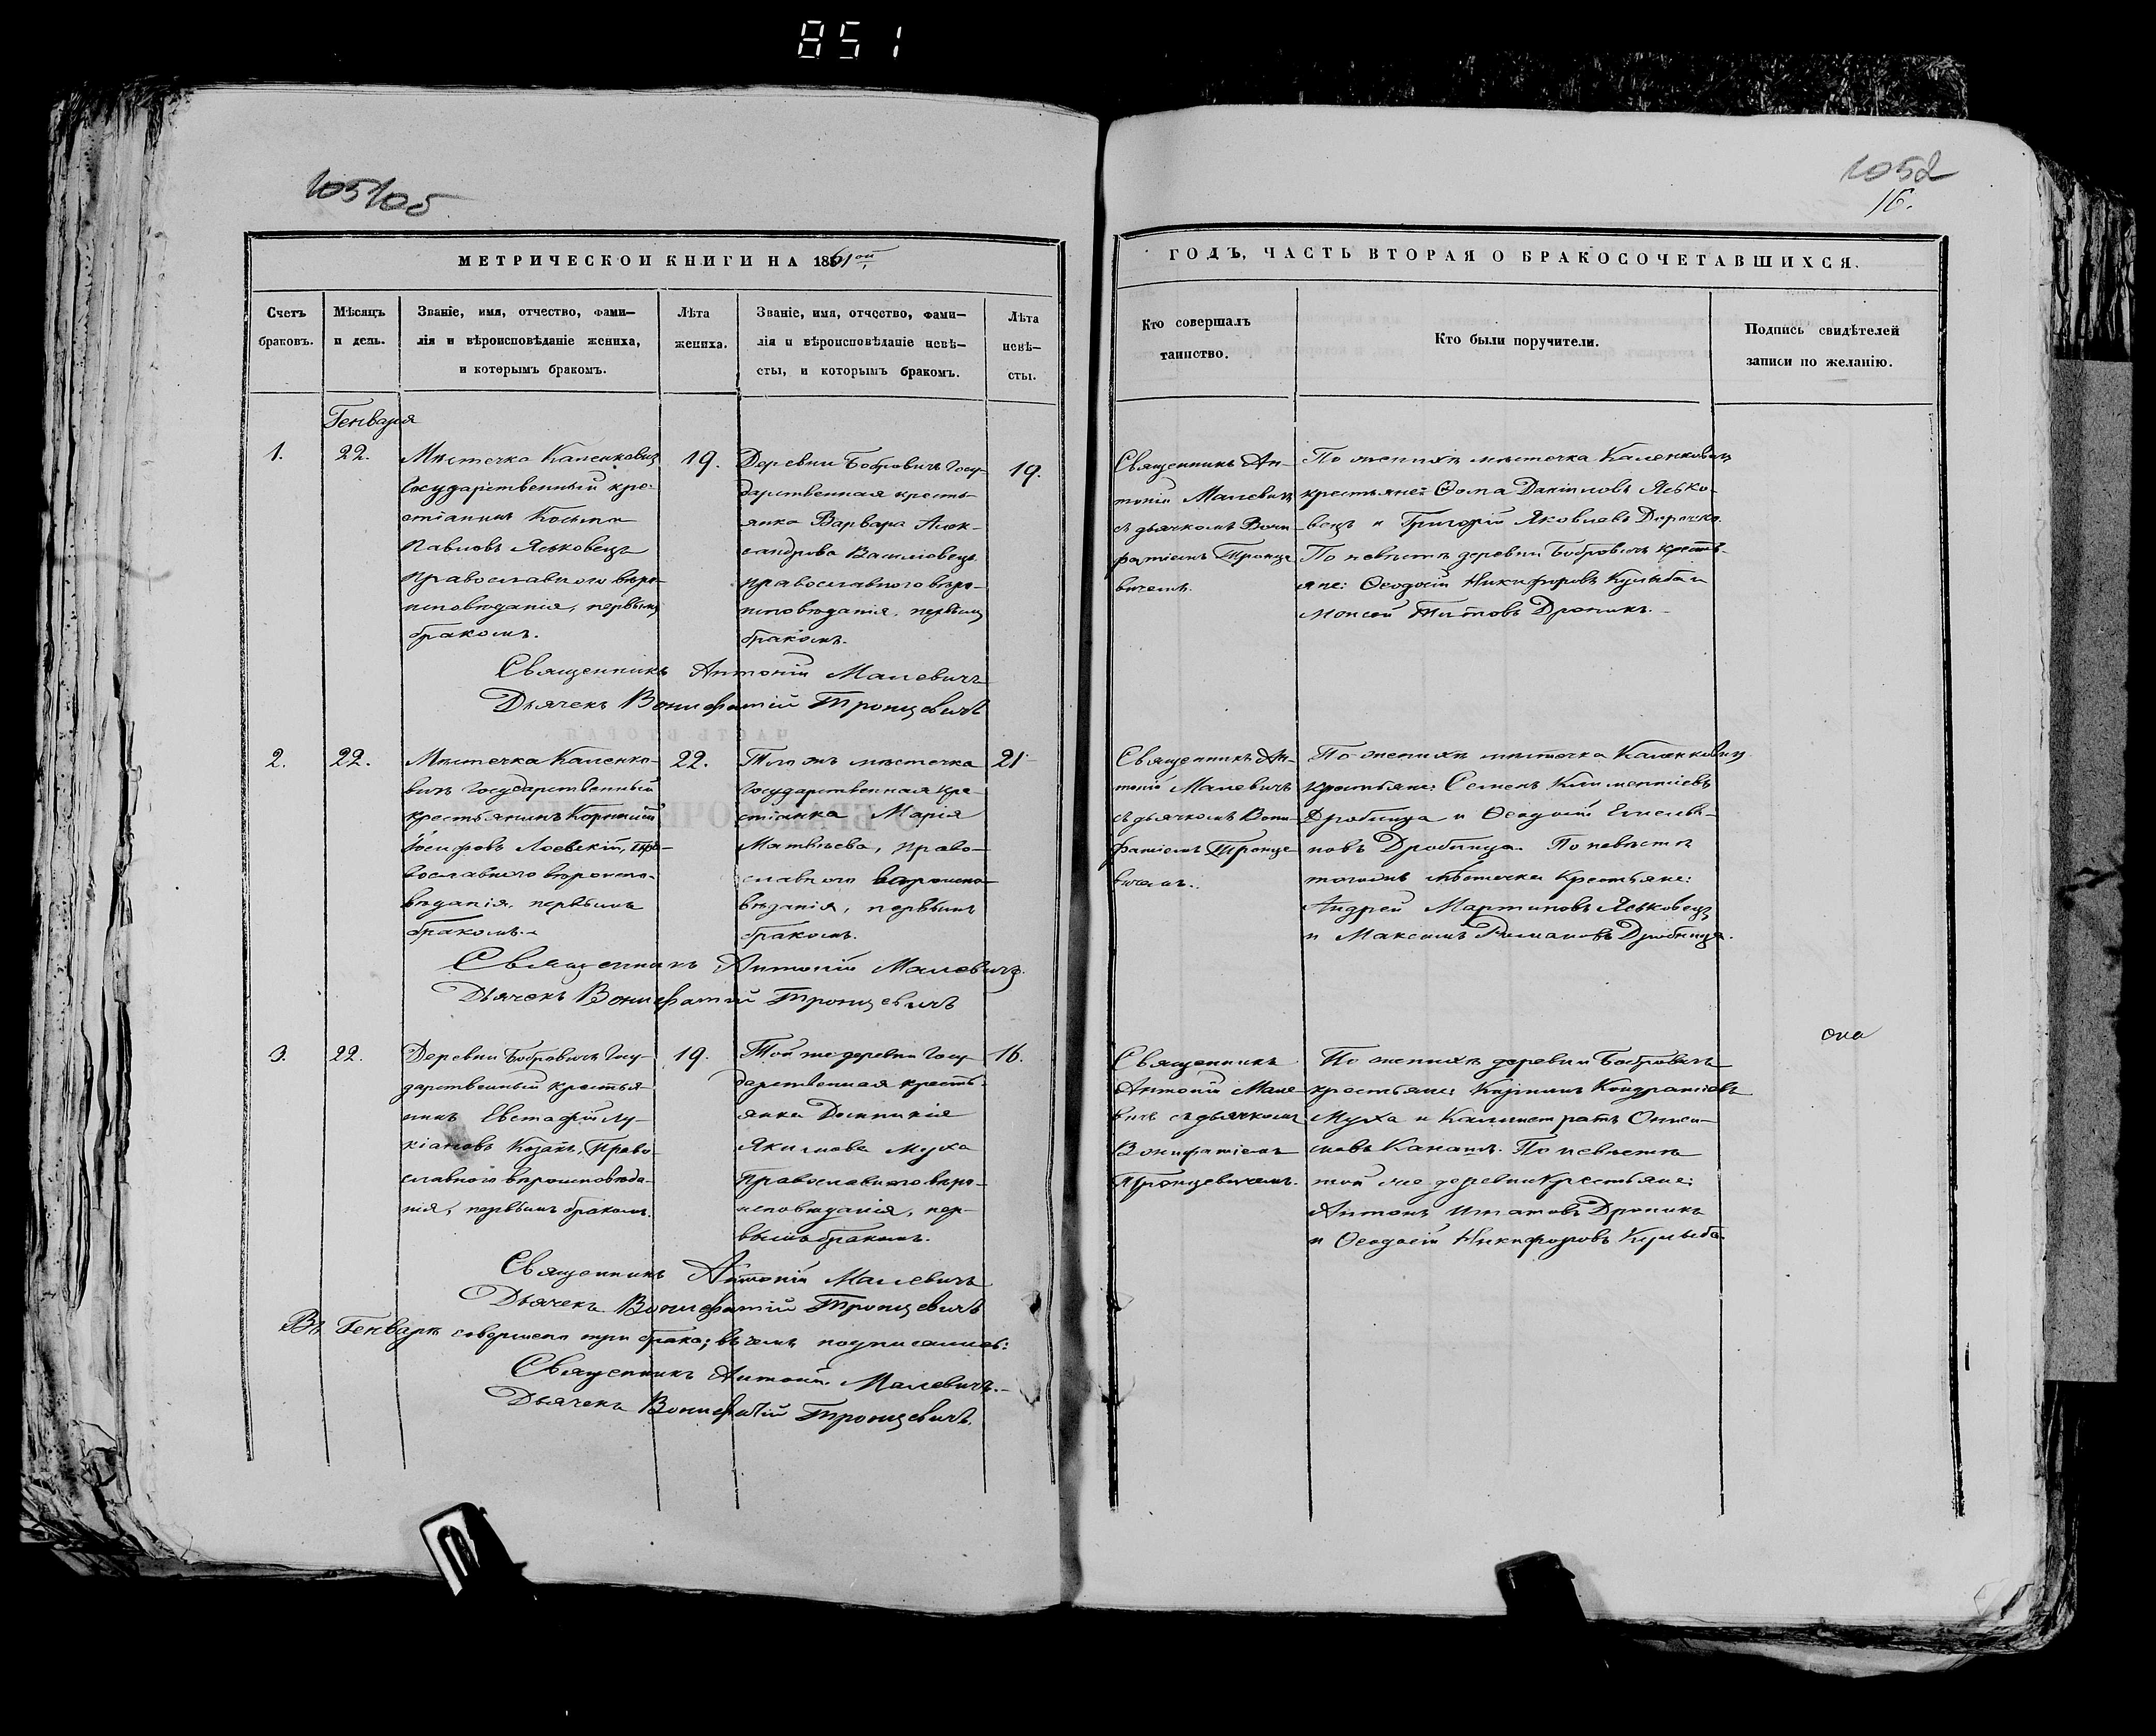 851
105105
1052
16.
МЕТРИЧЕСКОЙ КНИГИ НА 1861ой
ГОДЪ, ЧАСТЬ ВТОРАЯ О БРАКОСОЧЕТАВШИХСЯ.
Счетъ
браковъ.
Мѣсяцъ
и день.
Званіе, имя, отчество, фами—
лія и вѣроисповѣданіе жениха,
и которымъ бракомъ.
Лѣта
жениха.
Званіе, имя, отчество, фами—
лія и вѣроисповѣданіе невѣ—
сты, и которымъ бракомъ.
Лѣта
невѣ—
сты.
Кто совершалъ
таинство.
Кто были поручители.
Подпись свидѣтелей
записи по желанію.
Генваря
1.
22.
Мѣстечка Каленковичъ
Государственный кре-
стіанинъ Косьма
Павловъ Яськовецъ
православнаго вѣро-
исповѣданія, первымъ
бракомъ.
19.
Деревни Бобровичъ Госу-
дарственная кресть-
янка Варвара Алек-
сандрова Василовецъ
православнаго вѣро-
исповѣданія, первымъ
бракомъ.
19.
Священникъ Ан-
тоній Малевичъ
съ дьячкомъ Вони-
фатіемъ Тронце-
вичемъ.
По женихѣ мѣстечка Каленковичъ
крестьяне: Ѳома Даніиловъ Ясько-
вецъ и Григорій Яковлевъ
По невѣстѣ деревни Бобровичъ кресть-
яне: Ѳеодосій Никифоровъ Кулыба и
Моисей Титовъ Дроникъ.
Священникъ Антоній Малевичъ
Дьячекъ Вонифатій Тронцевичъ
2.
22.
Мѣстечка Каленко-
вичъ Государственный
крестьянинъ Корнилій
Іосифовъ Лоевскій, пра-
вославнаго вѣроиспо-
вѣданія, первымъ
бракомъ.
22.
Того жъ мѣстечка
Государственная кре-
стіанка Марія
Матвѣева, право-
славнаго вѣроиспо-
вѣданія, первымъ
бракомъ.
21
Священникъ Ан-
тоній Малевичъ
съ дьячкомъ Вони-
фатіемъ Тронце-
вичемъ.
По женихѣ мѣстечка Каленковичъ
крестьяне: Семенъ Климентіевъ
Дробница и Ѳеодосій Емелья-
новъ Дробница. По невѣстѣ
тогожъ мѣстечка крестьяне:
Андрей Мартиновъ Яськовецъ
и Максимъ Романовъ Дробница.
Священникъ Антоній Малевичъ.
Дьячекъ Вонифатій Тронцевичъ
3.
22.
Деревни Бобровичъ Госу-
дарственный крестья-
нинъ Евстафій Лу-
кіановъ Козакъ, право-
славнаго вѣроисповѣда-
нія, первымъ бракомъ.
19.
Той же деревни Госу-
дарственная кресть-
янка Домникія
Якимова Муха
православнаго вѣро-
исповѣданія, пер-
вымъ бракомъ.
16.
Священникъ
Антоній Мале-
вичъ съ дьячкомъ
Вонифатіемъ
Тронцевичемъ.
По женихѣ деревни Бобровичъ
крестьяне: Кондратіевъ
Муха и Каллистратъ Ониси-
мовъ Канашъ. По невѣстѣ
той же деревни крестьяне:
Антонъ Игнатовъ Дроникъ
и Ѳеодосій Никифоровъ Кулыба
Священникъ Антоній Малевичъ
Дьячекъ Вонифатій Тронцевичъ
Въ Генварѣ совершено три брака; въ чемъ подписались:
Священникъ Антоній Малевичъ.
Дьячекъ Вонифатій Тронцевичъ.